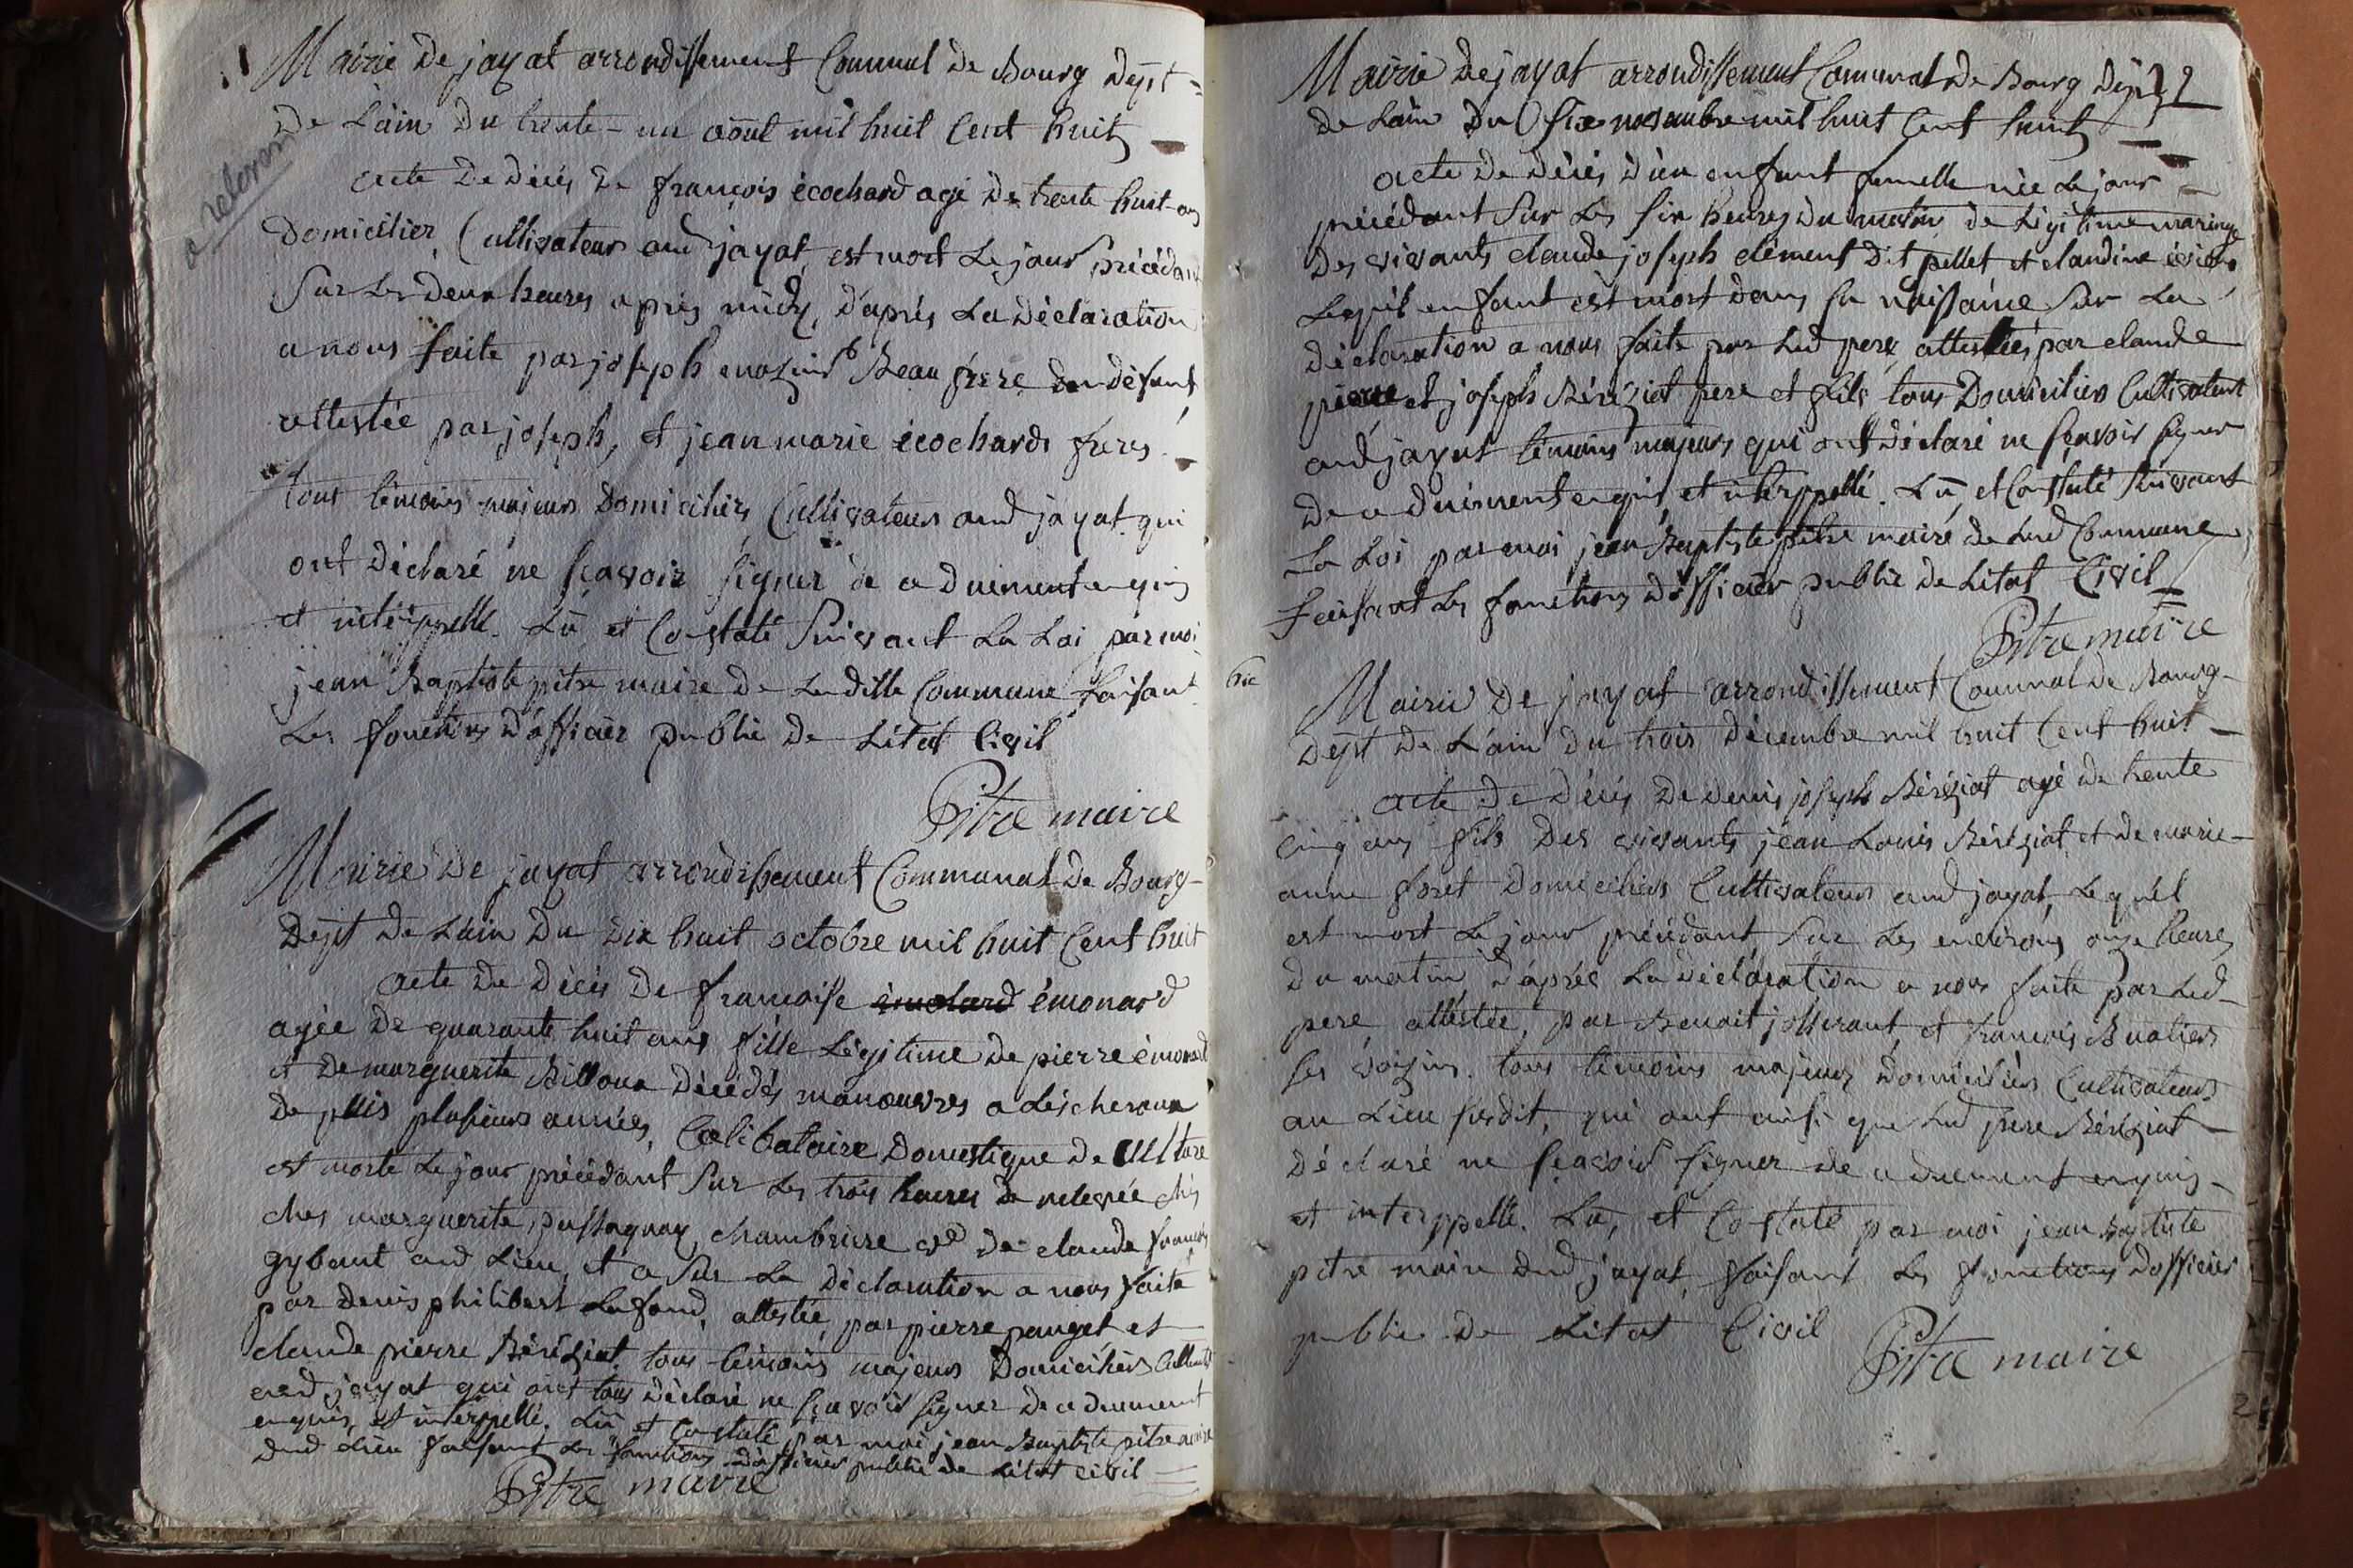 Mairie De jayat arrondissement Communal De Bourg Dept
De L'ain Du trente-un aoùt mil huit Cent huit
a reteni
acte De Décés De françois écochard agé De trente huit ans
Domicilier Cultivateur aud jayat est mort Le jour précédant
Sur Les Deux heures après midy, D'après La Déclaration
a nous faite par joseph Beau frere du défunt
attestée par joseph, et jean marie écochards freres
tous témoins majeurs Domiciliés Cultivateurs aud jayat qui
ont Déclaré ne sçavoir signer de ce Duement enquis
et interppellé. Lu et Constaté Suivant La Loi par moi
jean Baptiste pitre maire De Laditte Commune faisant
Les fonctions D'officier public De L'état Civil
Pitre maire
Mairie De jayat arrondissement Communal De Bourg
Dept De L'ain Du Dix huit octobre mil huit Cent huit
acte De Décés De françoise émonard
agée De quarante huit ans fille Légitime De pierre émonard
et De marguerite Billoux Décédés manouvres a Lescheroux
De puis plusieurs années, Célibataire Domestique De Culture
est morte Le jour précédant Sur Les trois heures De relevée chés
chés marguerite passaquay chambriere vve De claude françois
gybout aud Lieu, et a Sur La Déclaration a nous faite
par Denis philibert Lafond, attestée, par pierre pauget et
claude pierre Béréziat, tous témoins majeurs Domiciliés Cultivats
aud jayat qui ont tous Déclaré ne sçavoir signer De ce Duement
enquis, et interppellé. Lu et Constaté par moi jean Baptiste pitre maire
dud Lieu faisant Les fonctions D'officier public De L'état Civil
Pitre maire
Mairie De jayat arrondissement Communal De Bourg Dept
De L'ain Du Six novembre mil huit Cent huit
acte De Décés D'un enfant femelle née Le jour
précédant Sur Les six heures Du matin de Légitime mariage
Des vivants claude joseph clément Dit pellet et claudine
Lequel enfant est mort Dans Sa naissance Sur La
Déclaration a nous faite par Led pere, attestée par claude
pierre et joseph Béréziat pere et fils tous Domiciliés Cultivateurs
aud jayat témoins majeurs qui ont Déclaré ne sçavoir signer
De ce Duement enquis et interppellé. Lu, et Constaté Suivant
La Loi par moi jean Baptiste pitre maire de Lad Commune
faisant Les fonctions D'officier public De L'état Civil
Pitre maire
Mairie De jayat arrondissement Communal De Bourg
Dept De L'ain Du trois Décembre mil huit Cent huit
acte De Décés De Denis joseph Béréziat agé de trente
cinq ans fils Des vivants jean Louis Béréziat et De marie
anne foret Domiciliés Cultivateurs aud jayat, Lequel
est mort Le jour précédant, Sur Les environs onze heures
Du matin D'après La Déclaration a nous faite par Led
pere attestée, par Benoit josserant, et françois Buatier
Ses voisins. tous témoins majeurs Domiciliés Cultivateurs
au Lieu susdit, qui ont ainsi que Led pere Béréziat
Déclaré ne sçavoir signer De ce Duement enquis
et interppellé. Lu, et Constaté par moi jean Baptiste
pitre maire Dud jayat, faisant Les fonctions D'officier
public De L'état Civil
Pitre maire
2